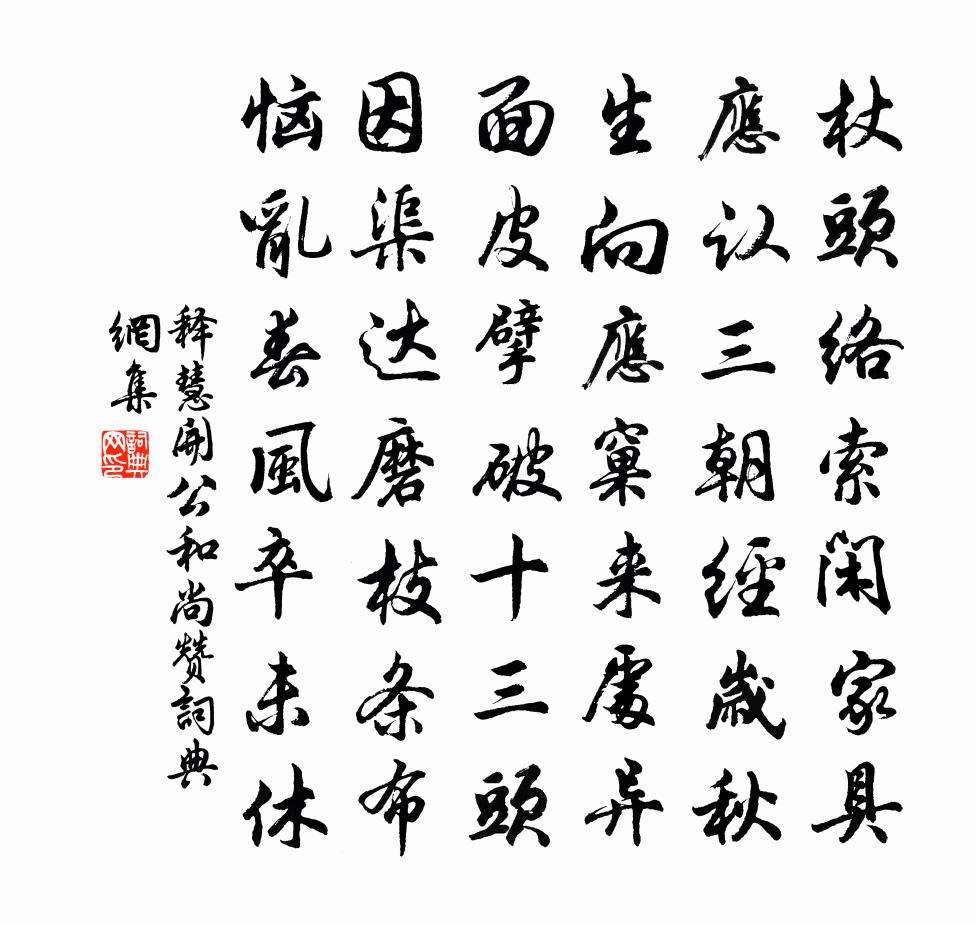 杖頭絡索閑家具
應认三朝經歲秋
生向應窠来處异
面皮擘破十三頭
因渠达磨枝条布
恼亂春風卒未休
释慧開公和尚赞詞典
網集
詞典网印